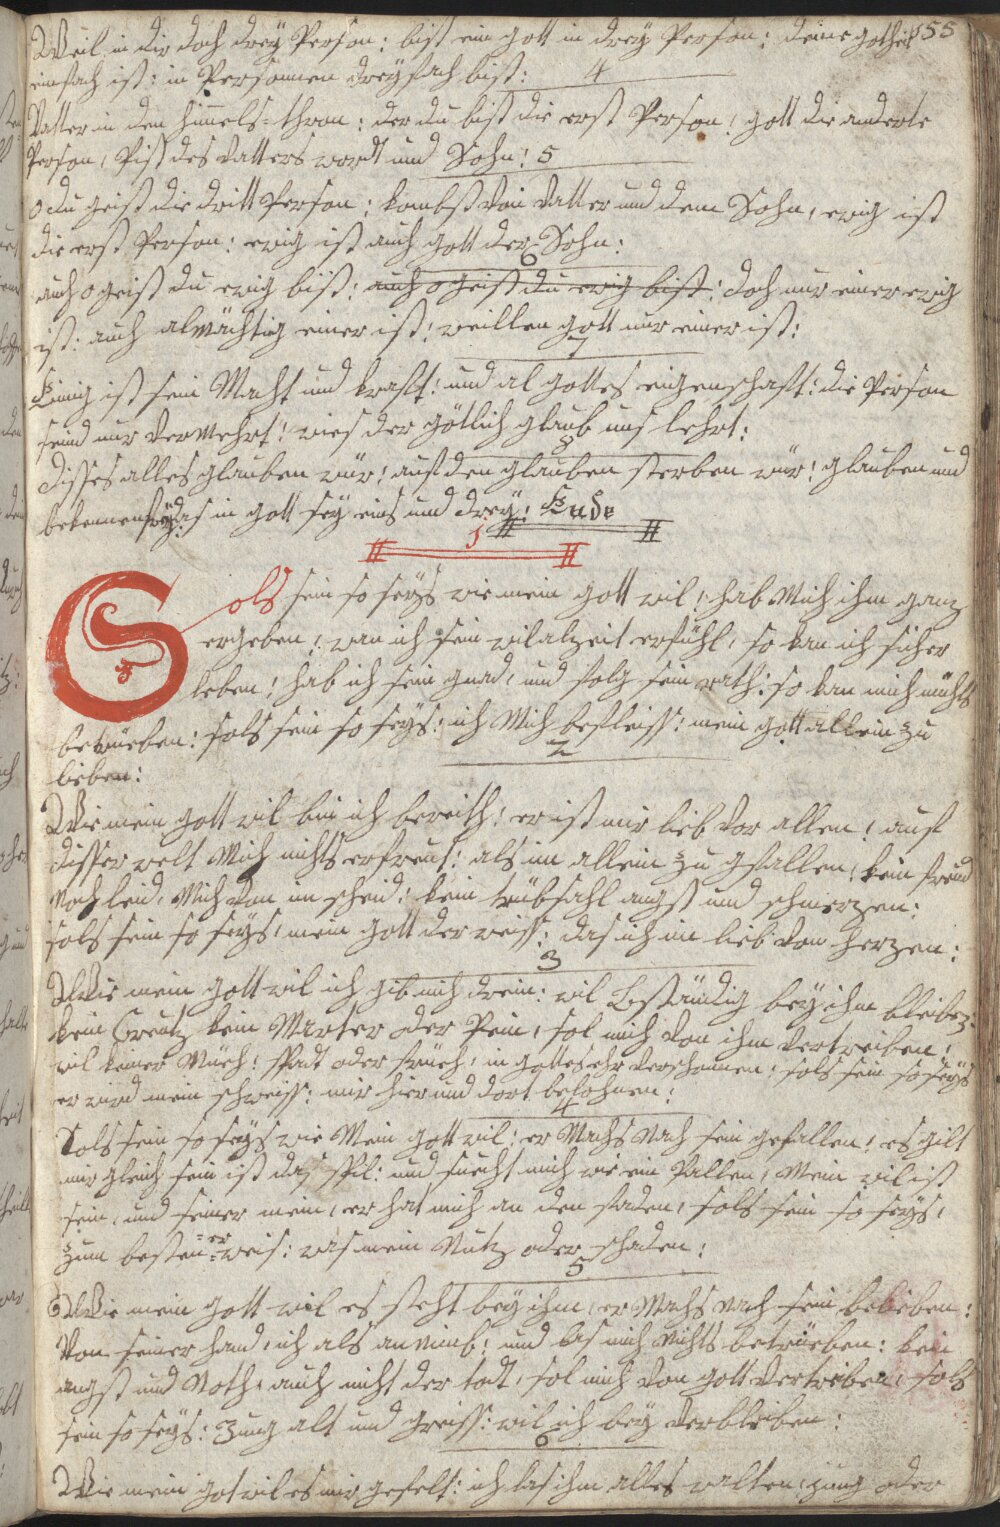 Weil in dir doch dreÿ Person: bist ein gott in dreÿ Person: deine gotheit 155
einfach ist: in Persohnen dreÿfach bist:
4
Vatter in den himels-thron: der du bist die erst Person: gott die anderte
Person, bist des Vatters wordt und Sohn: 5
o du geist die dritt Person: kombst von Vatter und dem Sohn, ewig ist
die erst Person: ewig ist auch gott der Sohn:
6
auch o geist du ewig bist: auch o geist du ewig bist: doch nur einer ewig
ist: auch almächtig einer ist: weillen gott nur einer ist:
7
Einig ist sein Macht und kraft: und al gottes eigenschaft: die Person
seind nur vermehrt: wies der götlich glaub uns lehrt:
8
disses alles glauben wür: auf den glauben sterben wür: glauben und
bekennen freÿ: das in gott seÿ eins und dreÿ: Ende
1
Sols sein so seÿs wie mein gott wil: hab Mich ihm ganz
ergeben: wan ich sein wil alzeit erfühl, so kan ich sicher
leben: hab ich sein gnad, und folg sein rath: so kan mich nichts
betrüeben: sols sein so seÿs: ich Mich befleiss: mein gott allein zu
lieben:
2
Wie mein gott wil bin ich bereith: er ist mir lieb vor allen: auf
disser welt Mich nichts erfreut: als im allein zu gfallen, kein freud
Noch leid, Mich von im scheid: kein trübsahl angst und schmerzen:
sols sein so seÿs, mein gott der weiss: das ich im lieb von herzen:
3
Wie mein gott wil ich gib mich drein: wil beständig beÿ ihm bleiben:
kein Creütz kein Marter oder Pein, sol mich von ihm vertreiben:
wil keiner Müeh: spadt oder früeh, in gottes ehr verschonnen: sols sein so seÿs
er wird mein schweiss: mir hier und dort belohnen:
4
Sols sein so seÿs wie Mein gott wil: er Machs Nach sein gefallen: es gilt
mir gleich sein ist das spil: und sucht mich wie ein ballen, Mein wil ist
sein, und seiner mein, er hat mich an den faden, sols sein so seÿs,
zum besten er weis: was mein Nutz oder schaden:
5
Wie mein gott wil es steht beÿ ihm, er Machs Nach sein belieben:
Von seiner hand, ich als annimb: und las mich Nichts betrüeben: kein
angst und Noth, auch nicht der todt, sol mich von gott vertreiben, sols
sein so seÿs: Jung alt und greiss: wil ich beÿ verbleiben:
6
Wie mein got wil es mir gefelt: ich las ihm alles walten, jung oder